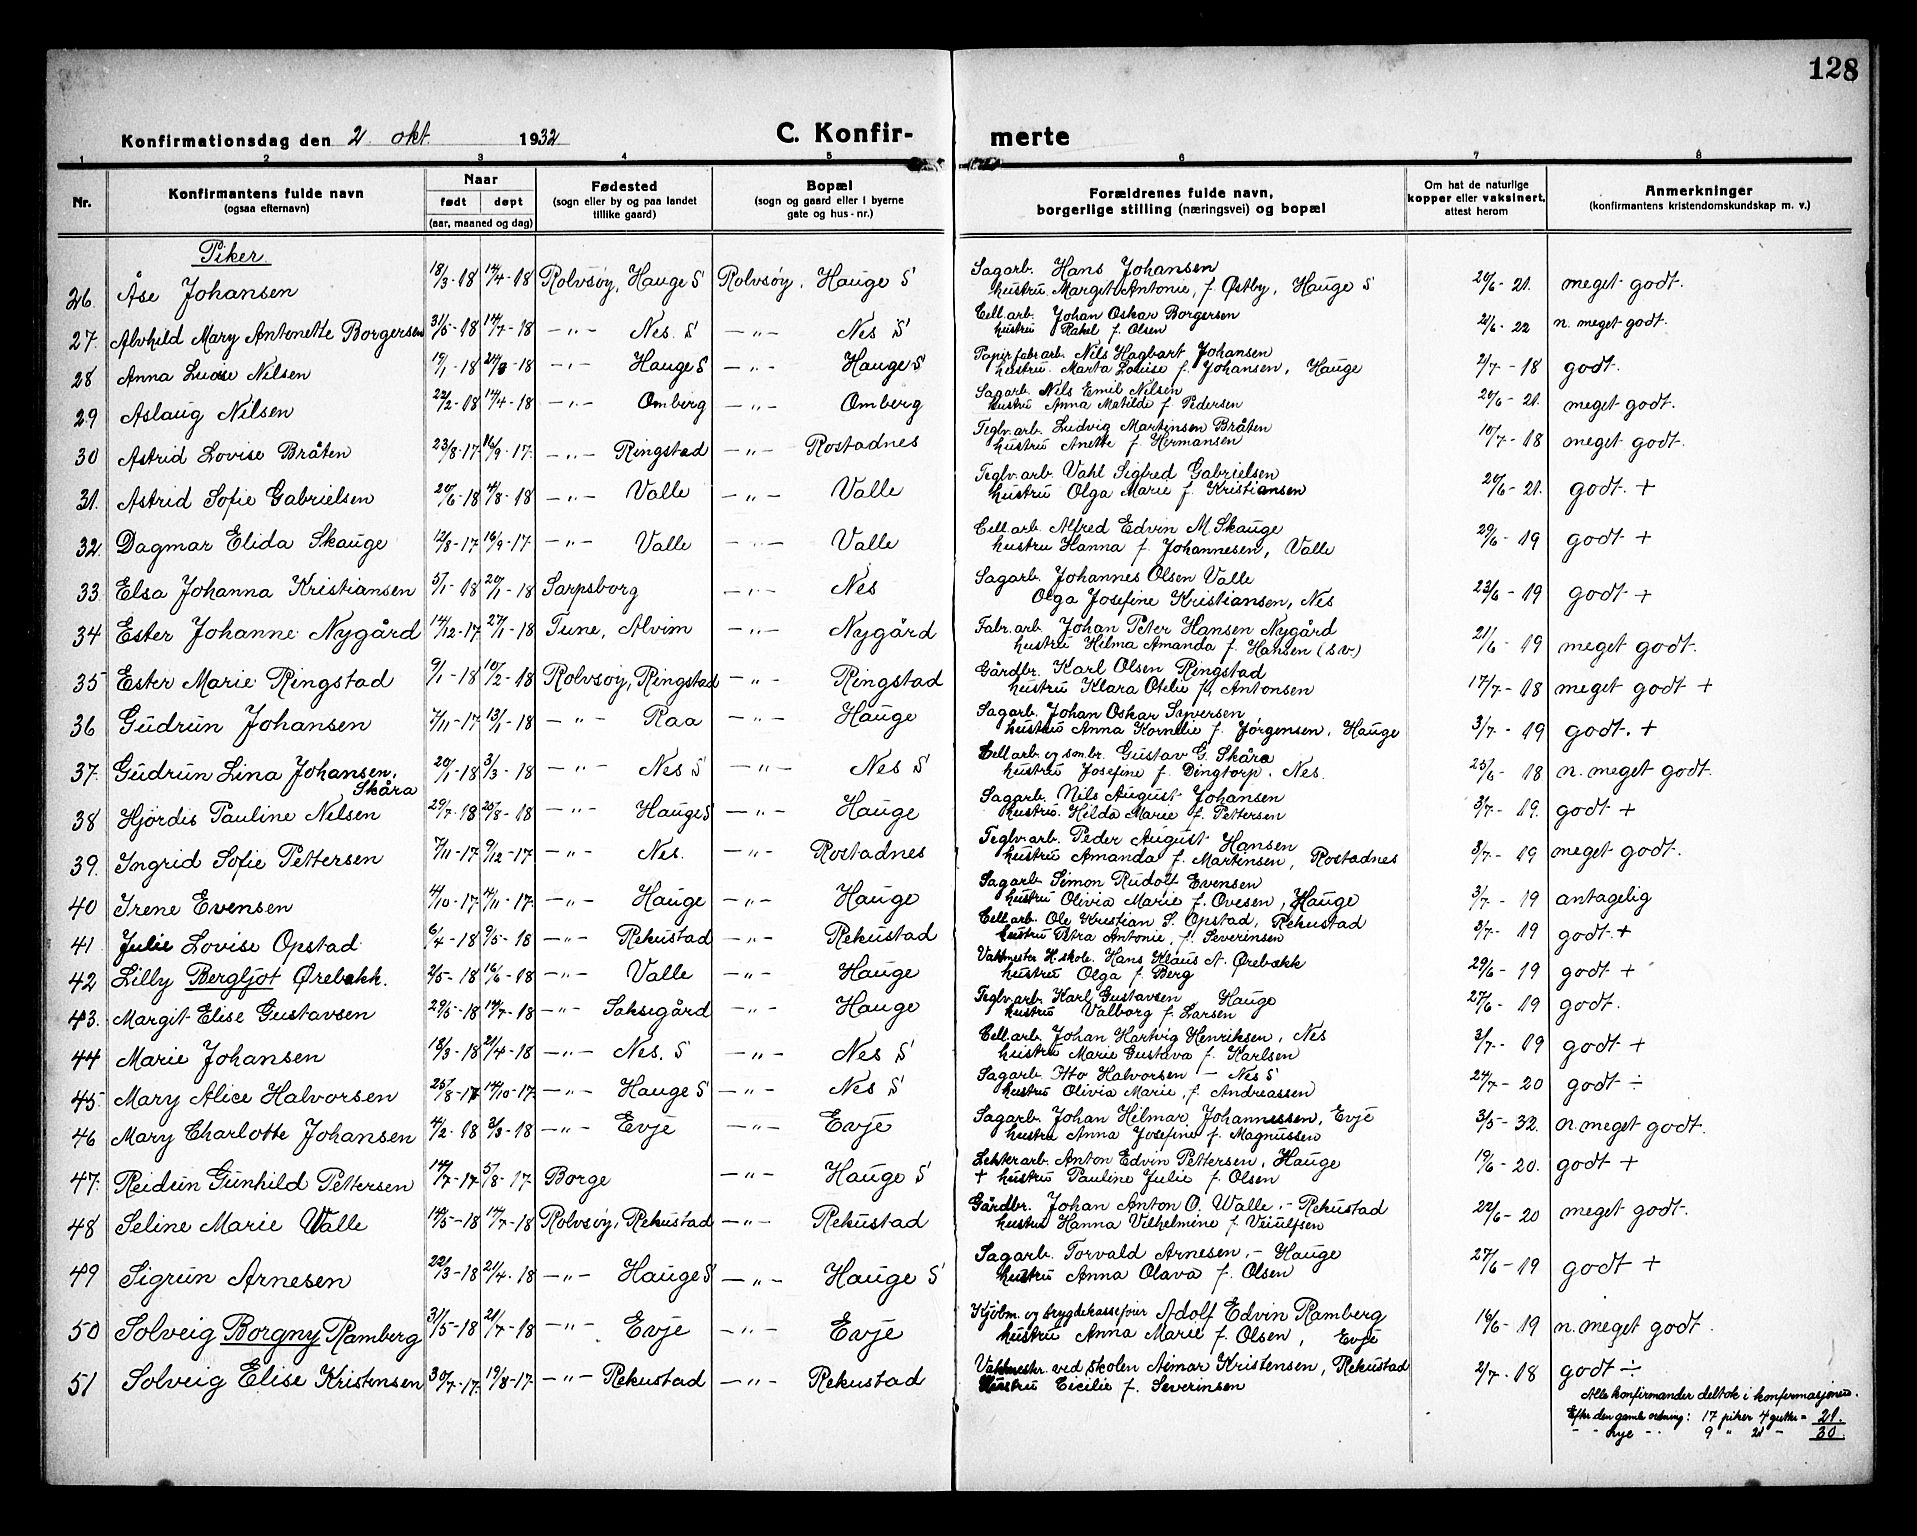 128
Konfirmationsdag den 2. okt. 1932
C. Konfirmerte
1 2 3 4 5 6 7 8
Nr. Konfirmantens fulde navn (ogsaa efternavn) Naar født døpt (aar, maaned og dag) Fødested (sogn eller by og paa landet tillike gaard) Bopæl (sogn og gaard eller i byerne gate og hus-nr.) Forældrenes fulde navn, borgerlige stilling (næringsvei) og bopæl Om hat de naturlige kopper eller vaksinert, attest herom Anmerkninger (konfirmantens kristendomskundskap m. v.)
Piker.
26. Åse Johansen 18/3-18 14/4-18 Rolvsøy, Hauge S Rolvsøy, Hauge S Sagarb. Hans Johansen
hustru Margit Antonie, f. Østby, Hauge S 20/6-21. meget godt.
27. Alvhild Mary Antonette Borgersen 31/5-18 14/7-18 -"- Nes. S -"- Nes S Cell.arb. Johan Oskar Borgersen
hustru Rakel f. Olsen 21/6-22 n. meget godt.
28 Anna Nilsen 19/1-18 -"- Hauge S -"- Hauge S Papirfabr.arb. Nils Hagbart Johansen
hustru. Marta Louise f. Johansen, Hauge 2/7-18 godt.
29 Aslaug Nilsen 22/2-18 14/4-18 -"- Omberg -"- Omberg Sagarb. Nils Emil Nilsen
hustru Anna Matilde f. Pedersen 20/6-21. meget godt.
30 Astrid Lovise Bråten 23/8-17 16/9-17. -"- Ringstad -"- Rostadnes Teglv.arb. Ludvig Martinsen Bråten
hustru Anette f. Hermansen 10/7-18 meget godt.
31. Astrid Sofie Gabrielsen 20/6-18 4/8-18 -"- Valle -"- Valle Teglv.arb. Vahl Sigfred Gabrielsen
hustru Olga Marie f. Kristiansen 20/6-21. godt. +
32. Dagmar Elida Skauge 12/8-17 16/9-17 -"- Valle -"- Valle Cell.arb. Alfred Edvin M. Skauge
hustru Hanna f. Johannesen, Valle 29/6-19 godt +
33. Elsa Johanna Kristiansen 5/1-18 20/1-18 Sarpsborg -"- Nes Sagarb. Johannes Olsen Valle
Olga Josefine Kristiansen, Nes 23/6-19 godt +
34 Ester Johanne Nygård 14/12-17 27/1-18 Tune, Alvim -"- Nygård Fabr.arb. Johan Peter Hansen Nygård
hustru Hilma Amanda f. Hansen (s.v) 21/6-19 meget godt.
35 Ester Marie Ringstad 9/1-18 10/2-18 Rolvsøy, Ringstad -"- Ringstad Gårdbr. Karl Olsen Ringstad
hustru Klara Otilie f. Antonsen 17/7-18 meget godt +
36 Gudrun Johansen 7/11-17 13/1-18 -"- Raa -"- Hauge Sagarb. Johan Oskar Syversen
hustru Anna Kornelie f. Jörgensen, Hauge 3/7-19 godt. +
37. Gudrun Lina Johansen. Skåra 20/1-18 3/3-18 -"- Nes S -"- Nes S Cellarb. og småbr. Gustav G. Skåra
hustru Josefine f. Dingtorp. Nes. 25/6-18 n. meget godt.
38 Hjördis Pauline Nilsen 29/7-18 25/8-18 -"- Hauge S -"- Hauge Sagarb. Nils August Johansen
hustru. Hilda Marie f. Pettersen 3/7-19. godt +
39. Ingrid Sofie Pettersen 7/11-17 9/12-17 -"- Nes. -"- Rostadnes Teglv.arb. Peder August Hansen
hustru Amanda f. Martinsen, Rostadnes 3/7-19 meget godt.
40 Irene Evensen 4/10-17 4/11-17. -"- Hauge -"- Hauge Sagarb Simon Rudolf Evensen
hustru Olivia Marie f. Ovesen, Hauge 3/7-19 antagelig
41. Julie Lovise Opstad 6/4-18 9/5-18 -"- Rekustad -"- Rekustad Cell.arb. Ole Kristian S. Opstad, Rekustad
hustru Petra Antonie, f. Severinsen 3/7-19 godt. +
42 Lilly Bergljot Ørebækk. 2/5-18 16/6-18 -"- Valle -"- Hauge Vaktmester H.skole. Hans Klaus A. Ørebækk
hustru Olga f. Berg 29/6-19 godt +
43. Margit Elise Gustavsen 29/5-18 14/7-18 -"- Saksegård -"- Hauge Teglv.arb. Karl Gustavsen Hauge
hustru Valborg f. Larsen 27/6-19 godt.
44 Marie Johansen 18/3-18 21/4-18 -"- Nes. S -"- Nes S Cell.arb. Johan Hartvig Henriksen, Nes
hustru Marie Gustava f. Karlsen 3/7-19 godt +
45. Mary Alice Halvorsen 25/8-17 14/10-17. -"- Hauge S -"- Nes S Sagarb. Otto Halvorsen - Nes S
hustru Olivia Marie, f. Andreassen 24/7-20 godt ÷
46 Mary Charlotte Johansen 4/2-18 3/3-18 -"- Evje -"- Evje Sagarb. Johan Hilmar Johannessen, Evje
hustru Anna Josefine f. Magnussen 3/5-32. n. meget godt.
47. Reidun Gunhild Pettersen 14/7-17 5/8-17. Borge -"- Hauge S Lekterarb. Anton Edvin Pettersen, Hauge
+ hustru Pauline Julie f. Olsen 19/6-20. godt +
48 Seline Marie Walle 14/5-18 14/7-18 Rolvsøy, Rekustad -"- Rekustad Gårdbr. Johan Anton O. Walle.- Rekustad
hustru Hanna Vilhelmine f. Veiulfsen 22/6-20 meget godt.
49 Sigrun Arnesen 22/3-18 21/4-18 -"- Hauge S -"- Hauge S Sagarb. Torvald Arnesen.- Hauge
hustru Anna Olava f. Olsen 27/6-19 godt +
50 Solveig Borgny Ramberg 31/5-18 21/7-18 -"- Evje -"- Evje Kjöbm. og trygdekassefører Adolf Edvin Ramberg
hustru Anna Marie f. Olsen, Evje 16/6-19 n. meget godt.
51 Solveig Elise Kristensen 30/7-17. 19/8-17. -"- Rekustad -"- Rekustad Vaktmester ved skolen Aimar Kristensen, Rekustad
hustru Cicilie f. Severinsen 2/7-18 godt ÷
Alle konfirmander deltok i konfirmasjonen.
Efter den gamle ordning: 17 piker 4 gutter = 21.
- " - nye - " - 9 " 21 - 30.